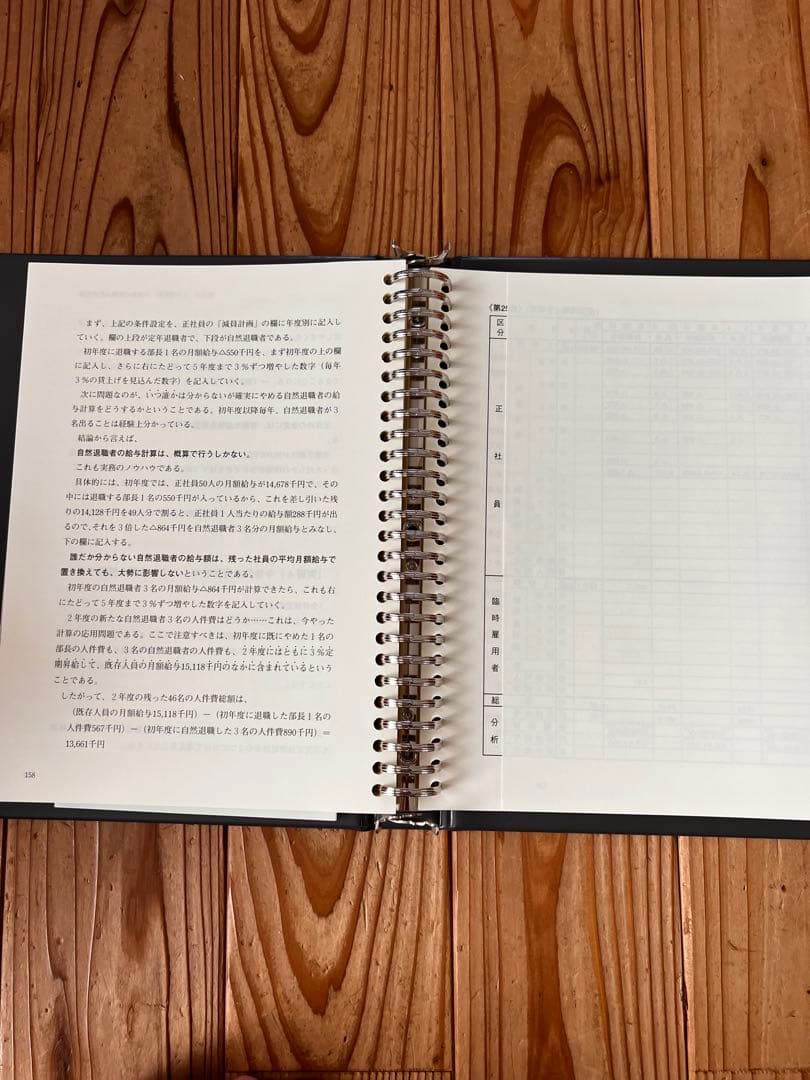 まず、上記の条件設定を、正社員の「減員計画」の欄に年度別に記入し
ていく。欄の上段が定年退職者で、下段が自然退職者である。
初年度に退職する部長1名の月額給与△550千円を、まず初年度の上の欄
に記入し、さらに右にたどって5年度まで3％ずつ増やした数字（毎年
3％の賃上げを見込んだ数字）を記入していく。
次に問題なのが、いつ誰かは分からないが確実にやめる自然退職者の給
与計算をどうするかということである。初年度以降毎年、自然退職者が3
名出ることは経験上分かっている。
結論から言えば、
自然退職者の給与計算は、概算で行うしかない。
これも実務のノウハウである。
具体的には、初年度では、正社員50人の月額給与が14,678千円で、その
中には退職する部長1名の550千円が入っているから、これを差し引いた残
りの14,128千円を49人分で割ると、正社員1人当たりの給与額288千円が出
るので、それを3倍した△864千円を自然退職者3名分の月額給与とみなし、
下の欄に記入する。
誰だか分からない自然退職者の給与額は、残った社員の平均月額給与で
置き換えても、大勢に影響しないということである。
初年度の自然退職者3名の月額給与△864千円が計算できたら、これも右
にたどって5年度まで3％ずつ増やした数字を記入していく。
2年度の新たな自然退職者3名の人件費はどうか……これは、今やった
計算の応用問題である。ここで注意すべきは、初年度に既にやめた1名の
部長の人件費も、3名の自然退職者の人件費も、2年度にはともに3％定
期昇給して、既存人員の月額給与15,118千円のなかに含まれているという
ことである。
したがって、2年度の残った46名の人件費総額は、
（既存人員の月額給与15,118千円）－（初年度に退職した部長1名の
人件費567千円）－（初年度に自然退職した3名の人件費890千円）＝
13,661千円
158
《第25
区分
正社員
臨時雇用者
総
分析